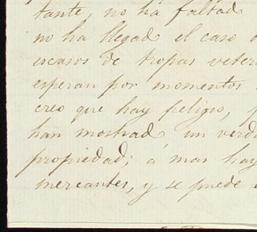 tante, no ha faltad
no ha llegad el caso
escasos de tropas veter
esperan por momentos
creo que hay peligro,
han mostrad un verd
propiedad; á mas hay
mercantes, y se puede